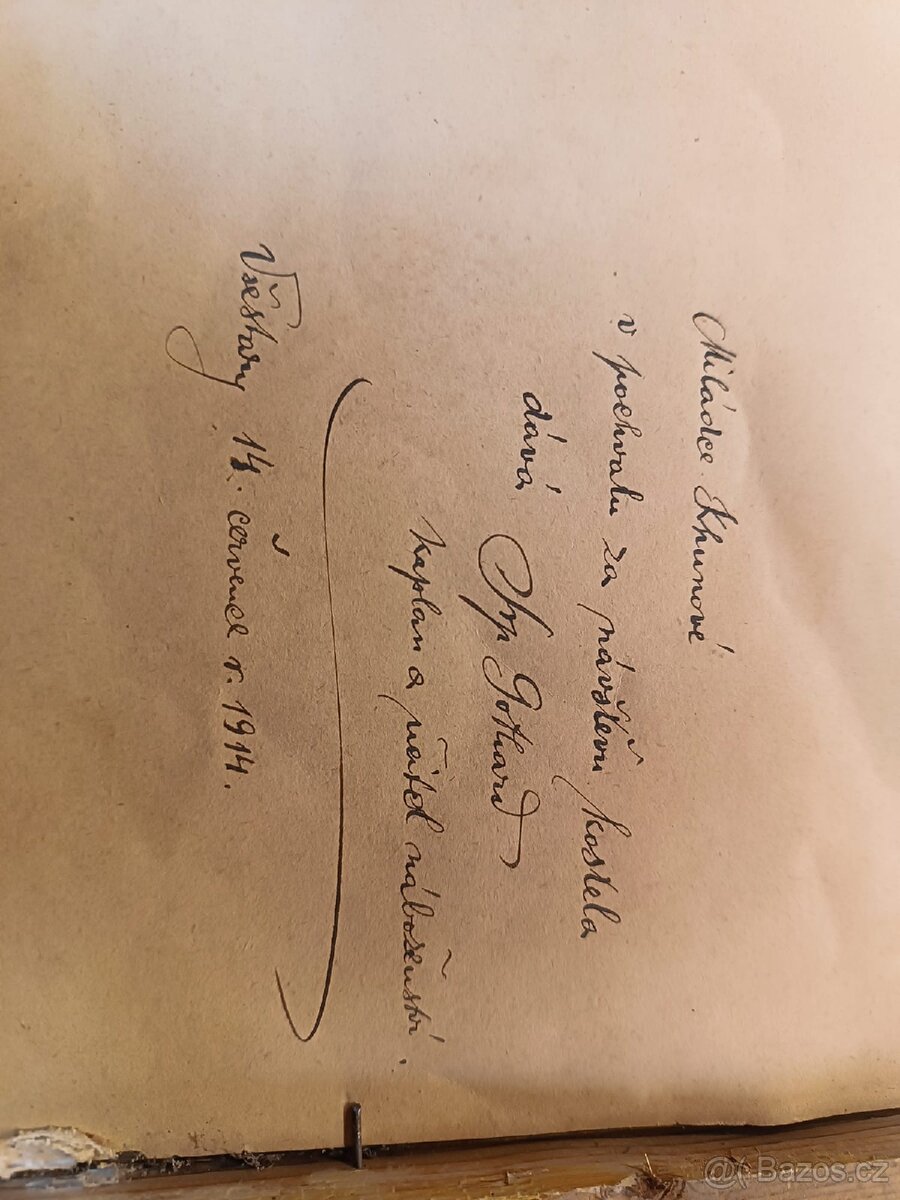 Miládce Khunové
v pochvalu za návštěvu kostela
dává Gothard
kaplan a učitel náboženství.
Všestary 14. července r. 1914.
@( Bazos.cz